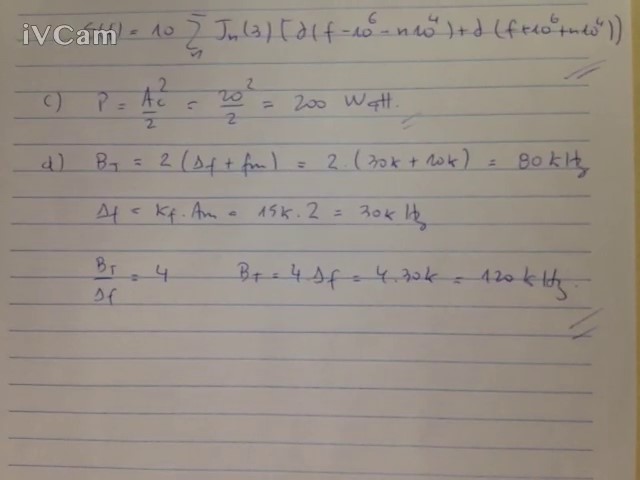 iVCam
S(f) = 10 Σ_n J_n(3) [∂(f-10^6-n10^4)+∂(f+10^6+n10^4)]
c) P = Ac^2/2 = 20^2/2 = 200 Watt.
d) B_T = 2(Δf+fm) = 2.(30k+10k) = 80kHz
Δf = kf.Am = 15k.2 = 30k Hz
B_T/Δf = 4 B_T = 4.Δf = 4.30k = 120kHz.